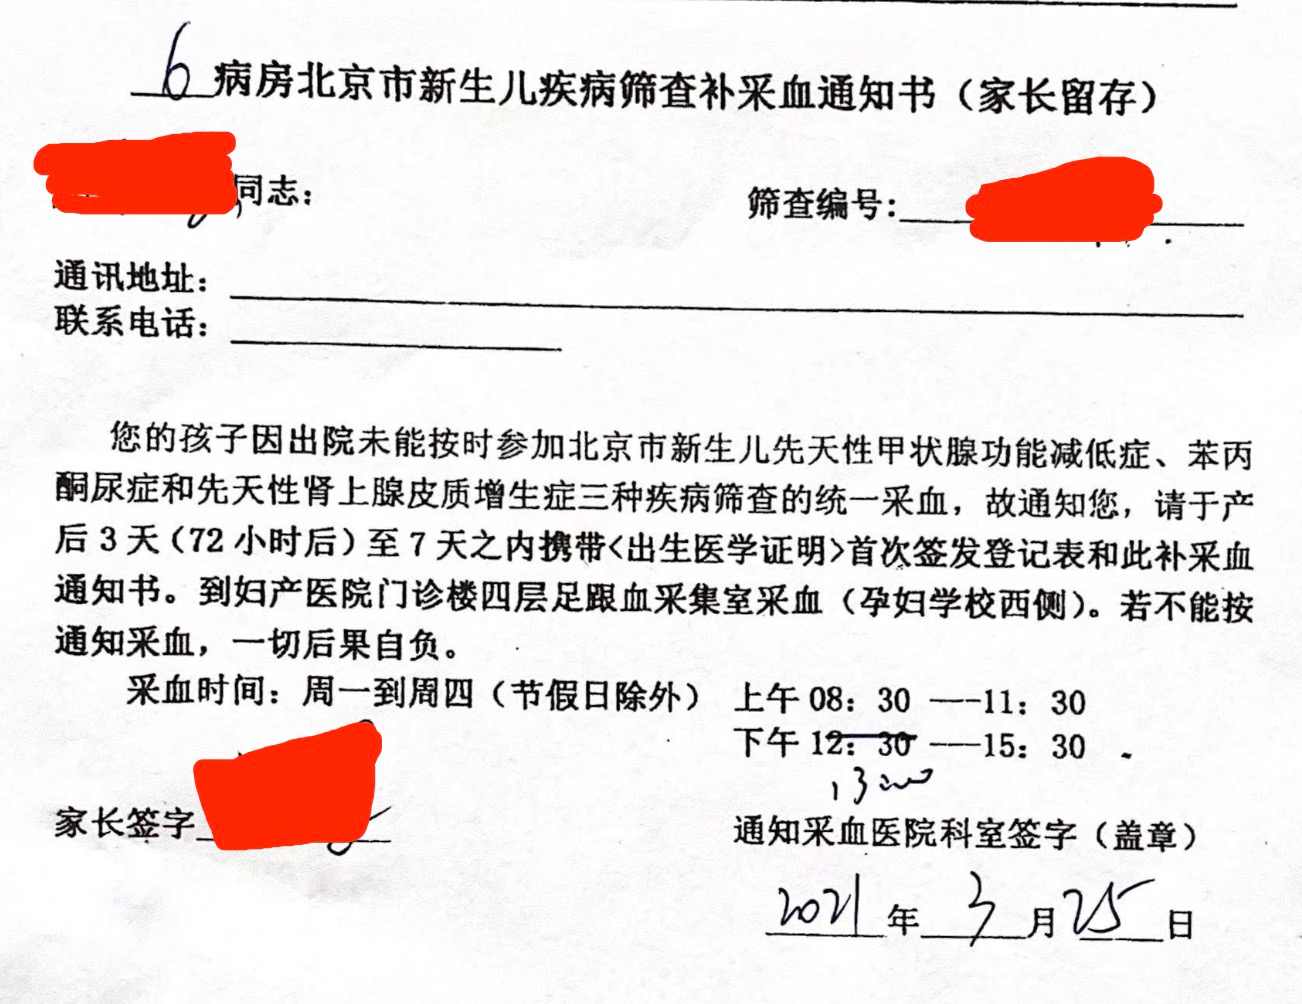 6 病房北京市新生儿疾病筛查补采血通知书（家长留存）
同志： 筛查编号:
通讯地址：
联系电话：
您的孩子因出院未能按时参加北京市新生儿先天性甲状腺功能减低症、苯丙
酮尿症和先天性肾上腺皮质增生症三种疾病筛查的统一采血，故通知您，请于产
后 3 天（72 小时后）至 7 天之内携带<出生医学证明>首次签发登记表和此补采血
通知书。到妇产医院门诊楼四层足跟血采集室采血（孕妇学校西侧）。若不能按
通知采血，一切后果自负。
采血时间：周一到周四（节假日除外） 上午 08：30 —-11：30
下午 12：30 —-15：30
13:00
家长签字
通知采血医院科室签字（盖章）
2021 年 3 月 25 日